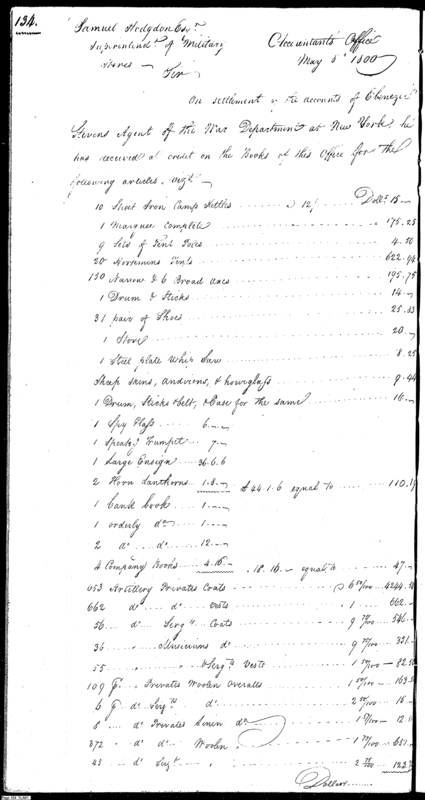 134.
Samuel Hodgdon Esqr
Superintendt of Military
Stores —
Accountants Office
May 5th 1800
Sir
On settlement of the accounts of Ebenezer
Stevens Agent of the War Department at New York, he
has received a credit on the Books of this Office for the
following articles. Vizt —
10 Sheet Iron Camp Kettles 12/ Dolls 15 —
1 Marquee complete 175.25
9 Sets of Tent Poles 4.50
20 Horsemens Tents 622.94
130 Narrow & 6 Broad axes 195.75
1 Drum & Sticks 14 —
31 pair of Shoes 25.83
1 Stove 20 —
1 Steel plate Whip Saw 8.25
Sheep skins, andirons, & hourglass 9.44
1 Drum, Sticks & belt, & Case for the same 16 —
1 Spy Glass 6 —
1 Speakg Trumpet 7 —
1 Large Ensign 36.6.6
2 Horn Lanthorns £ 44.1.6 equal to 110.19
1 band book 1 —
1 orderly do 1 —
2 do do 12 —
4 Company Books 4.16 — 18.16 — equal to 47 —
653 Artillery Privates Coats 6 50/100 4244.50
662 do do Vests 1 662 —
56 do Sergts Coats 9 75/100 546 —
36 Musicians do 9 75/100 351 —
55 & Sergts Vests 1 50/100 — 82.50
109 pr Privates Woolen Overalls 1 50/100 — 163.50
6 pr do Sergts do 2 50/100 15 —
8 do Privates Linen do
372 do do Woolen 651 —
45 do Sergts
Dollars